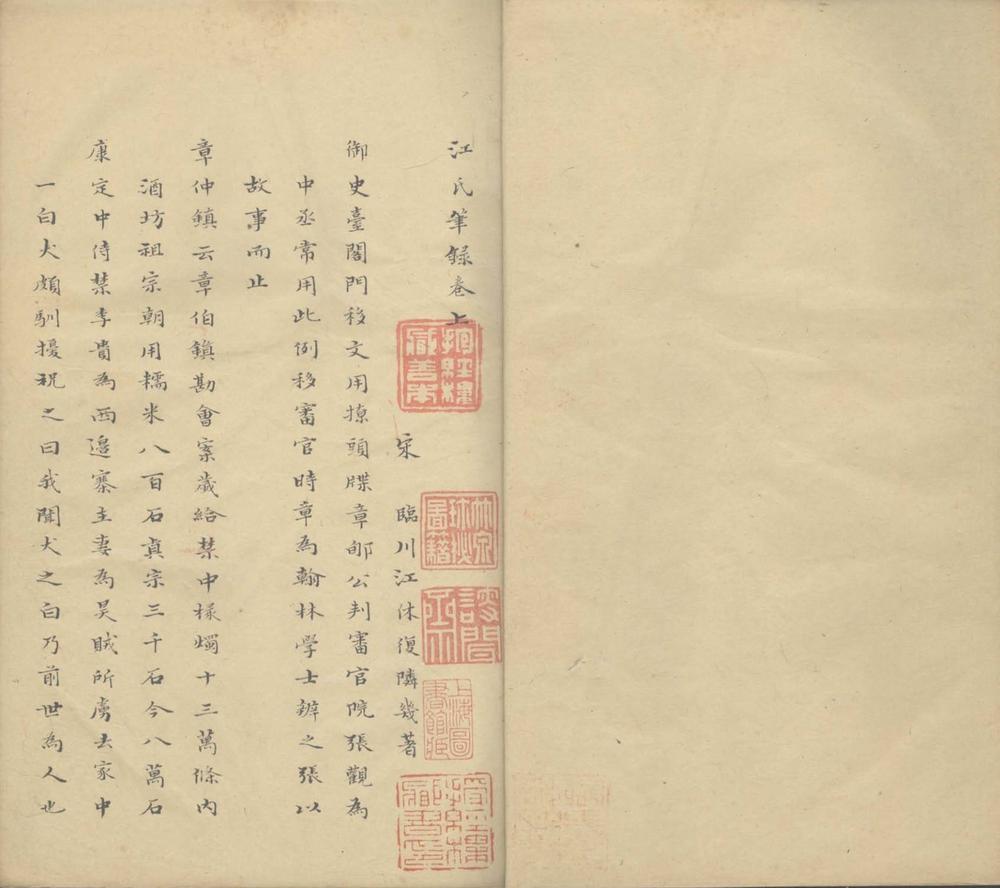 江氏筆録卷上
宋 臨川江休復隣幾著
御史臺閤門移文用撩頭牒章郇公判審官院張觀為
中丞常用此例移審官時章為翰林學士辨之張以
故事而止
章仲鎮云章伯鎮勘會案歲給禁中椽燭十三萬條内
酒坊祖宗朝用糯米八百石真宗三千石今八萬石
康定中侍禁李貴為西邉寨主妻為昊賊所虜去家中
一白犬頗馴擾祝之曰我聞犬之白乃前世為人也
上海圖書館藏